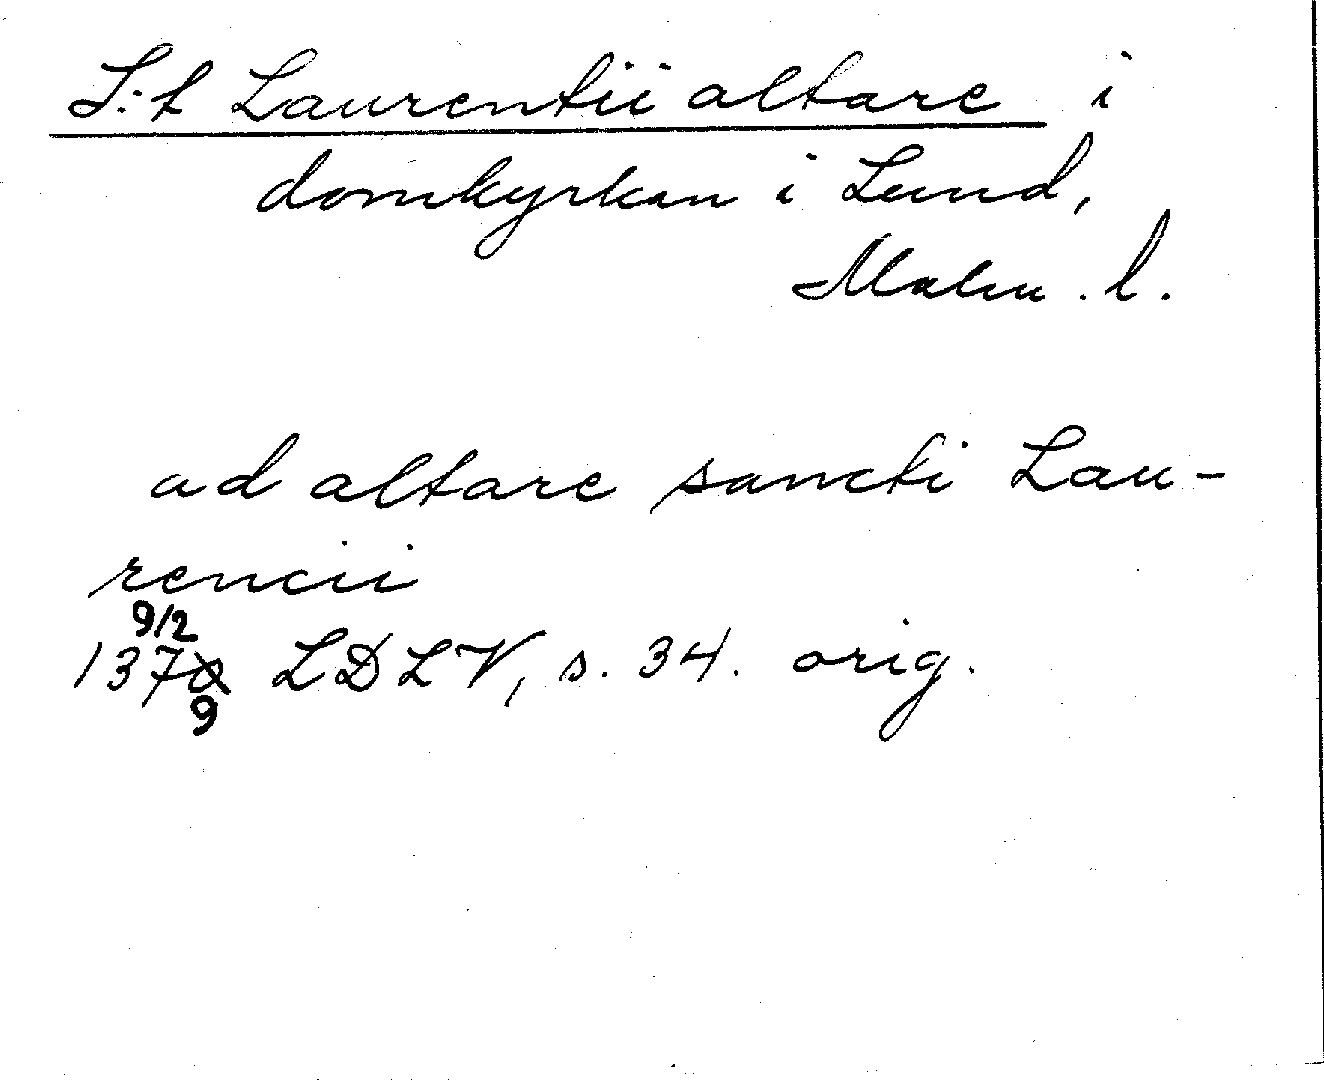 S:t Laurentii altare i
domkyrkan i Lund,
Malm. l.
ad altare sancti Lau-
rencii
9/2
137 LDLV, s. 34. orig.
9